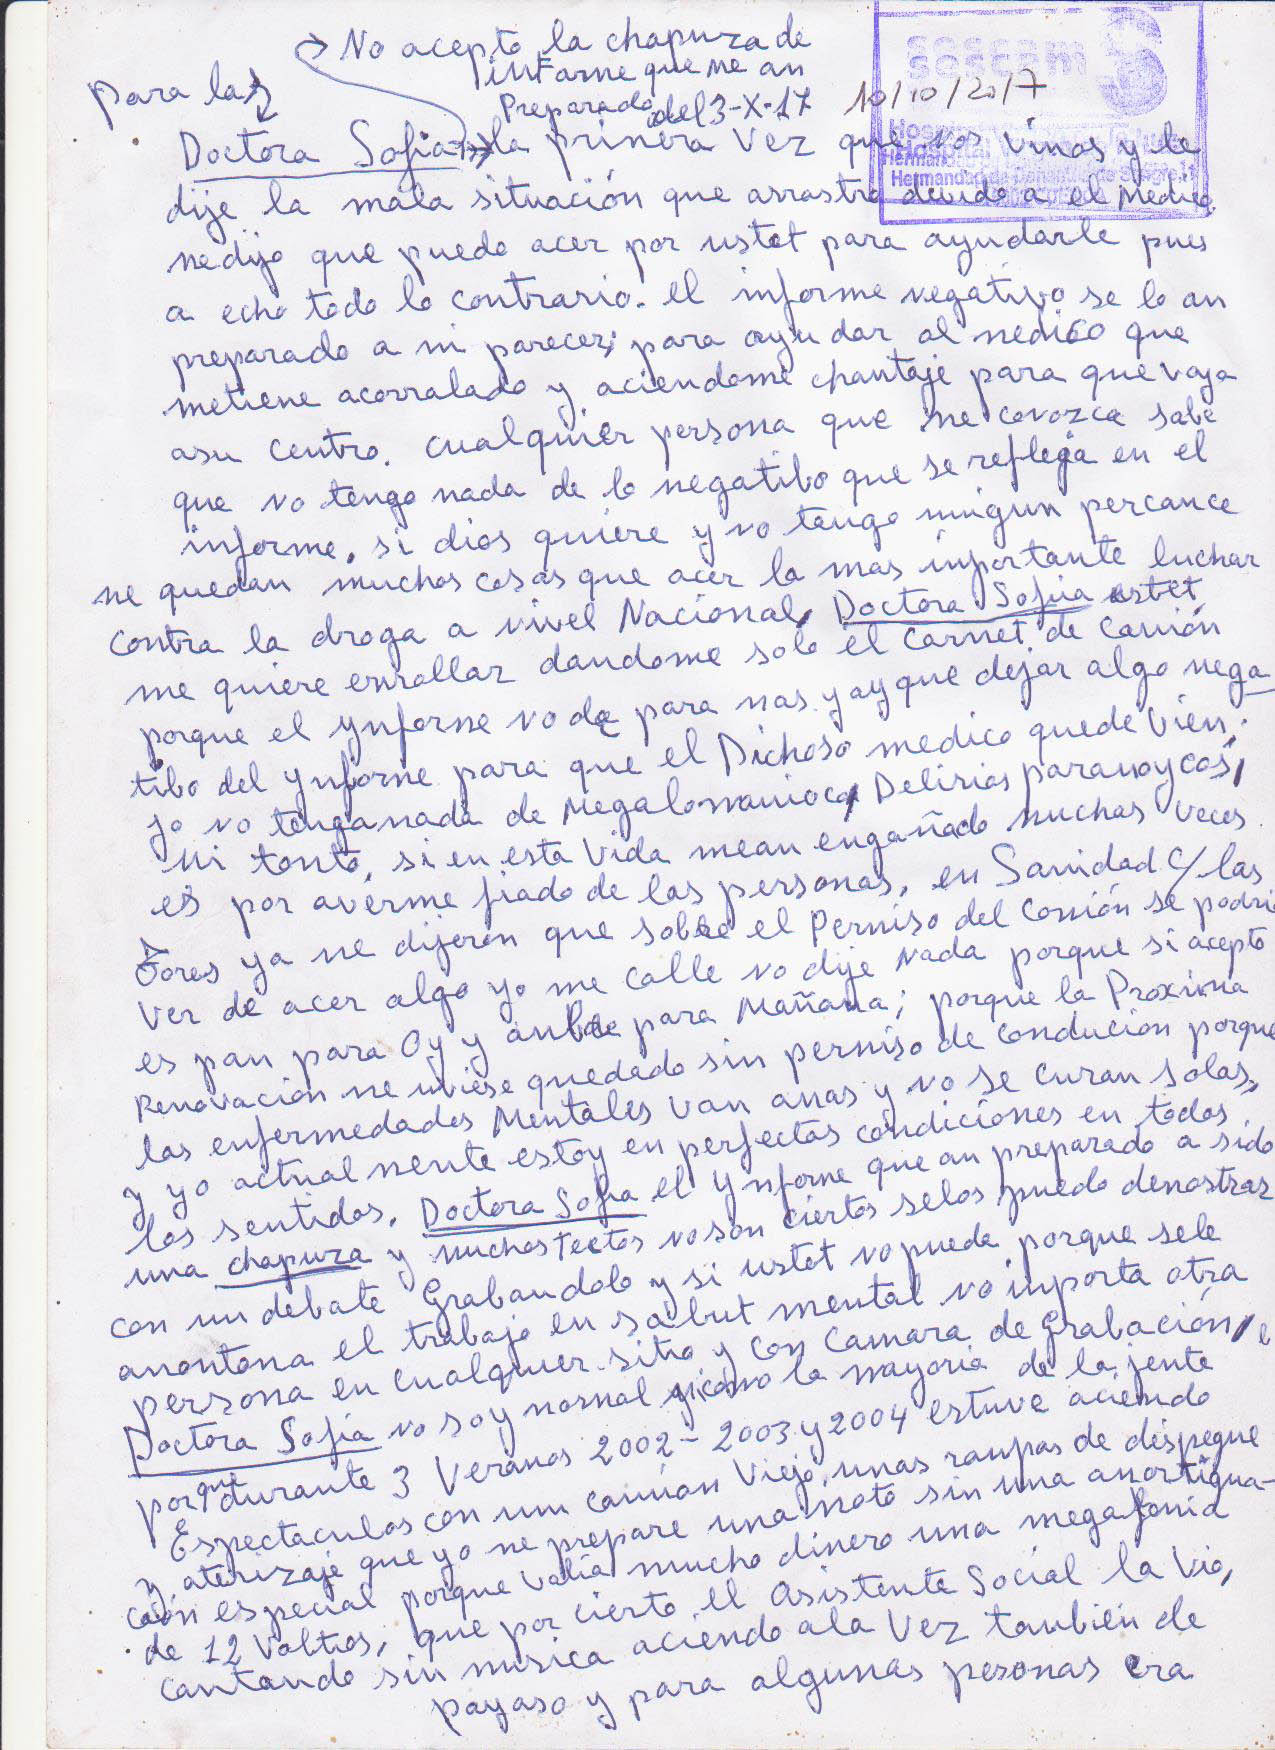 → No acepto la chapuza de
informe que me an
Preparado del 3-X-17
para la
sescam
sescam
10/10/2017
Hermandad de Donantes de Sangre, 1
Doctora Sofia la primera Vez que nos vimos y le
dije la mala situación que arrastro devido a el Medico.
me dijo que puedo acer por ustet para ayudarle pues
a echo todo lo contrario. el informe negativo se lo an
preparado a mi parecer; para ayudar al medico que
metiene acorralado y aciendome chantaje para que vaya
asu centro. cualquier persona que me conozca sabe
que no tengo nada de lo negatibo que se refleja en el
informe. si dios quiere y no tengo ningun percance
me quedan muchas cosas que acer la mas importante luchar
contra la droga a nivel Nacional, Doctora Sofia ustet
me quiere enrollar dandome solo el carnet de camión
porque el ynforme no da para mas y ay que dejar algo nega-
tibo del ynforme para que el Dichoso medico quede vien;
Jo no tenga nada de Megalomanioca, Delirios paranoycos,
Ni tonto, si en esta vida mean engañado muchas veces
es por averme fiado de las personas. en Sanidad C/ las
Torres ya me dijeron que sobre el Permiso del camión se podria
ver de acer algo yo me calle no dije Nada porque si acepto
es pan para Oy y anbre para Mañana; porque la Proxima
Renovación me uviese quedado sin permiso de conducion porque
las enfermedades Mentales van amas y no se curan solas,
y yo actual mente estoy en perfectas condiciones en todos
los sentidos. Doctora Sofia el ynforme que an preparado a sido
una chapuza y muchos textos no son ciertos selos puedo demostrar
con un debate Grabandolo y si ustet no puede porque sele
amontona el trabajo en salut mental no inporta otra
persona en cualquier sitio y con camara de grabación,
Doctora Sofia no soy normal como la mayoria de la jente
porque durante 3 Veranos 2002 - 2003 y 2004 estuve aciendo
Espectaculos con un camión Viejo, unas ranpas de despegue
y aterizaje que yo me prepare una moto sin una amortigua-
ción especial porque valia mucho dinero una megafonia
de 12 Voltios, que por cierto el Asistente Social la Vio,
cantando sin musica aciendo ala Vez tambien de
payaso y para algunas pesonas era